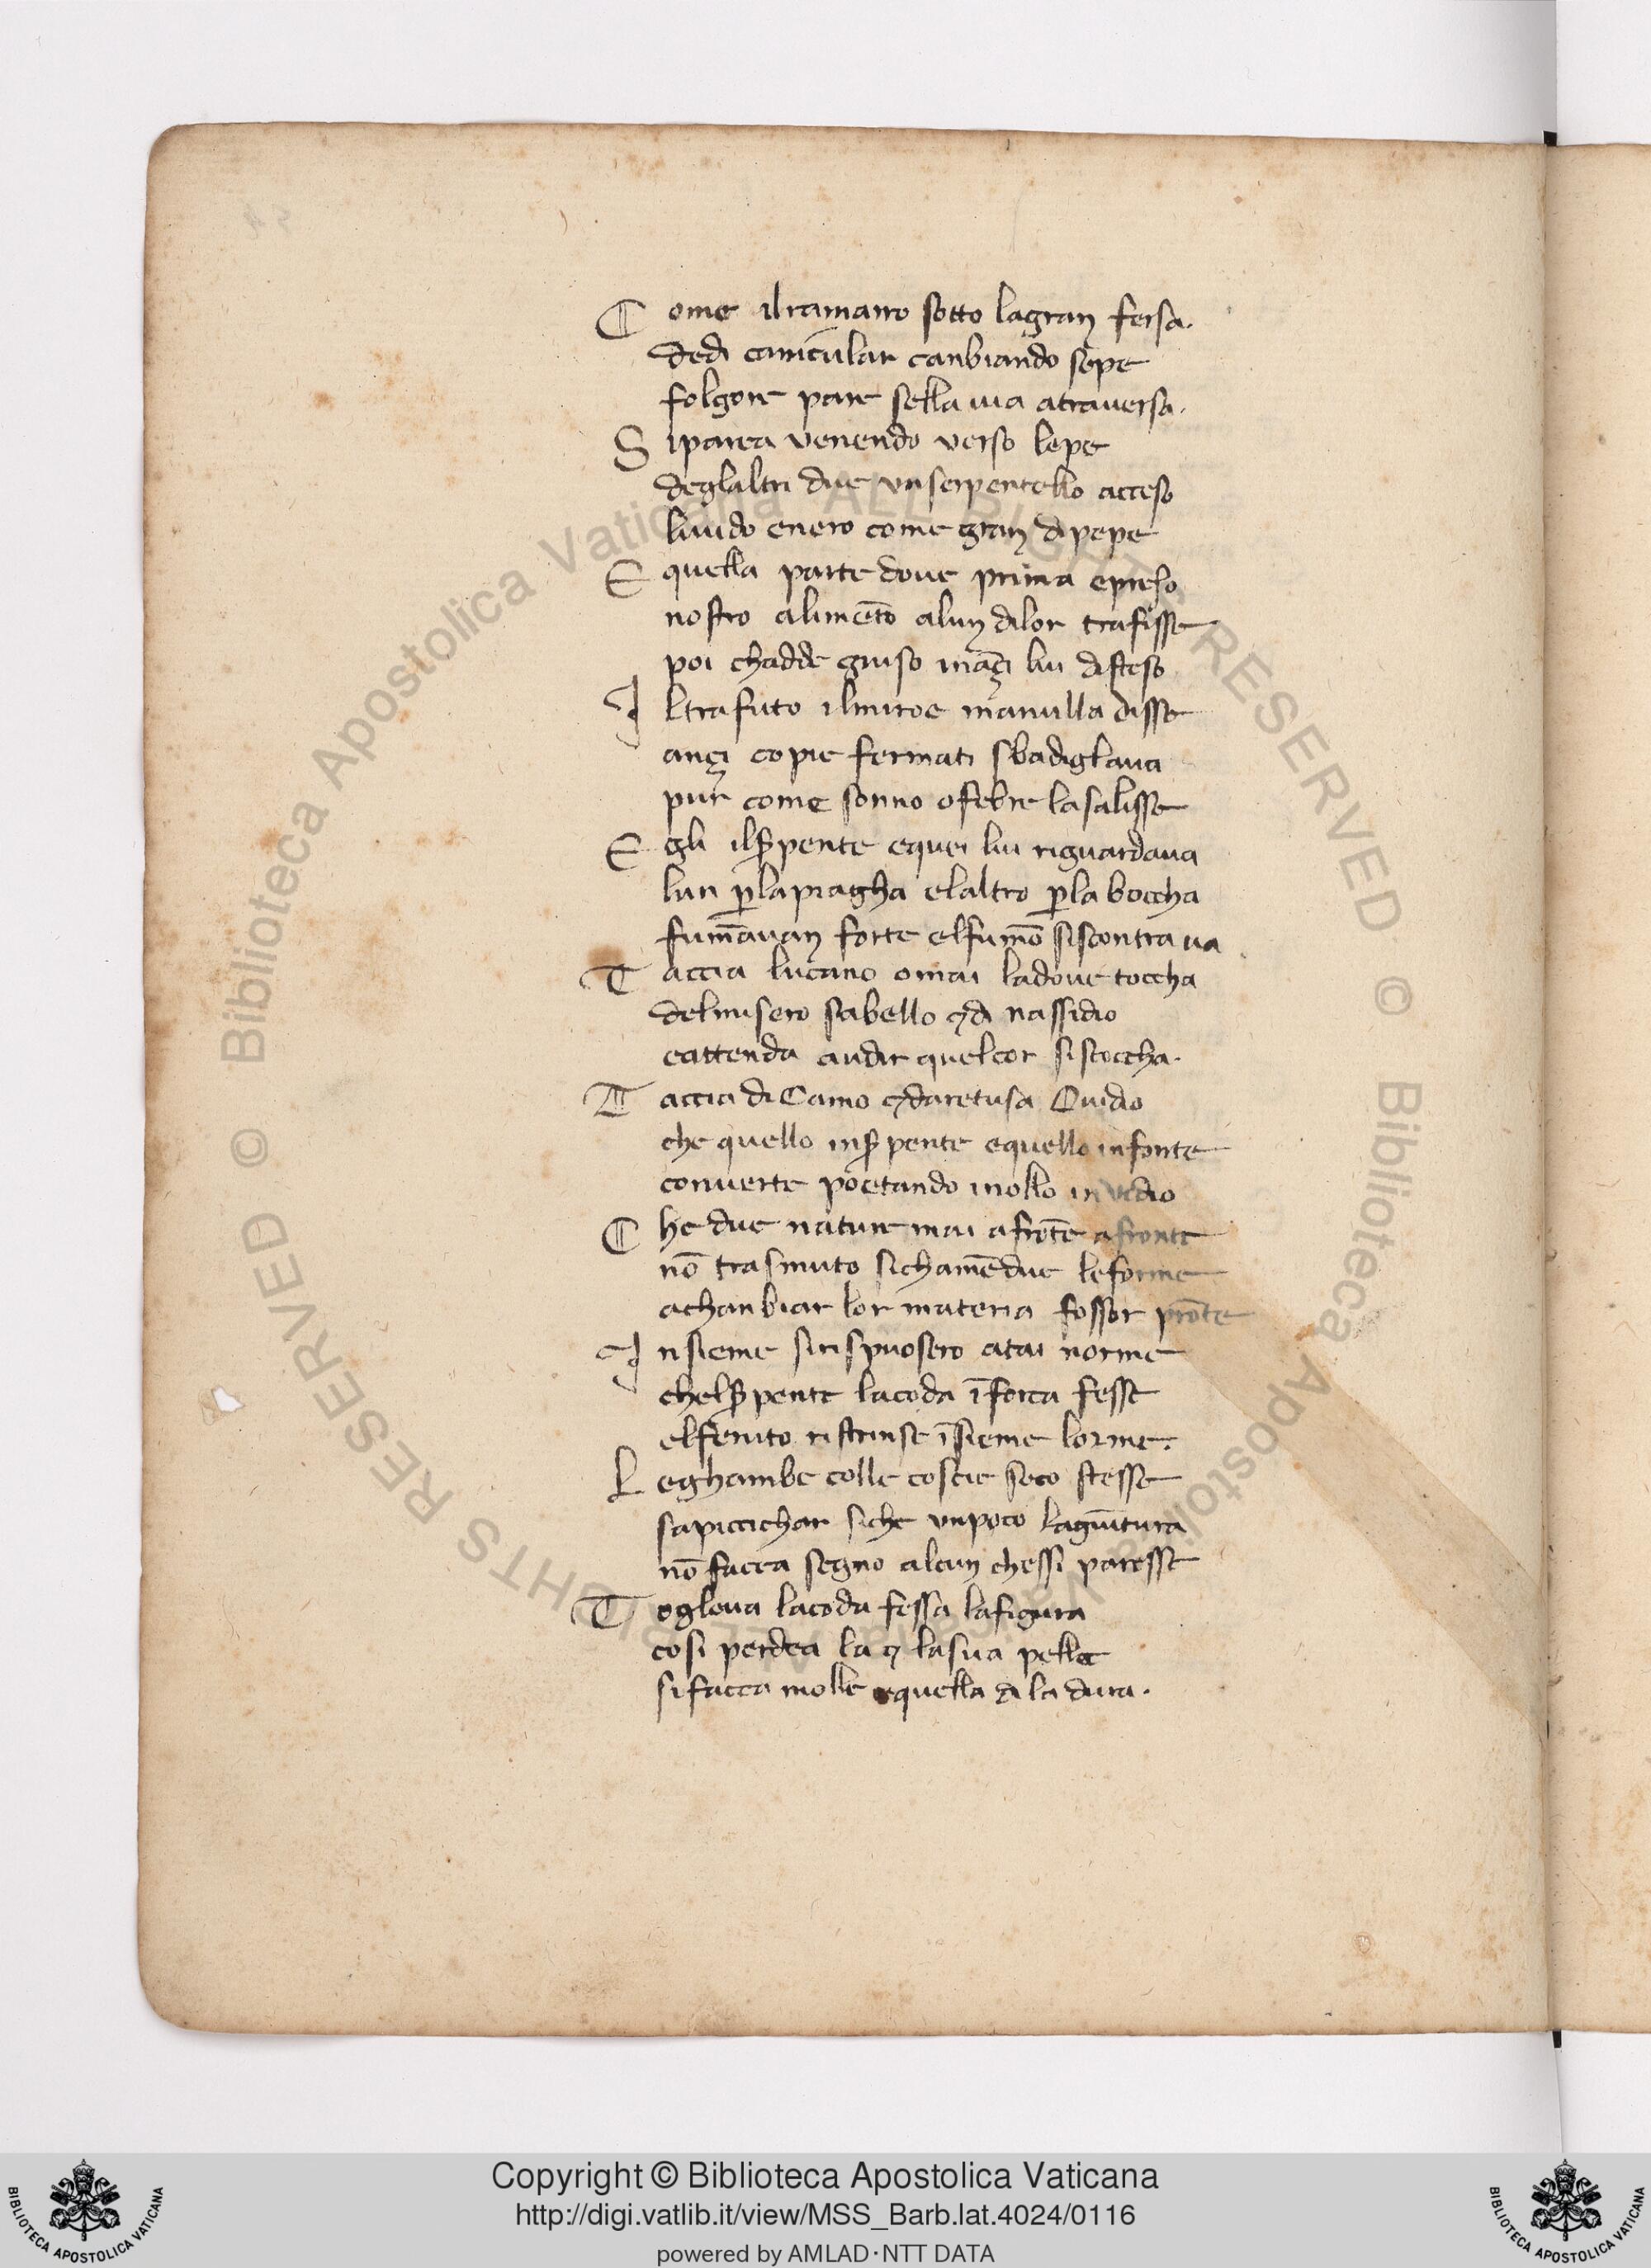 Come ilramarro sotto lagran fersa.
dedi canicular canbiando sepe
folgore pare sella uia atrauersa.
Siparea venendo verso lepe
deglaltri due vnserpentello acceso
liuido enero come gran di pepe
E quella parte doue prima epreso
nostro alimēto alun dilor trafisse
poi chadde giuso ināçi lui disteso
Iltrafitto ilmiroe manulla disse
ançi copie fermati sbadiglaua
pur come sonno ofebre lasalisse
Egli ilꝑpente equei lui riguardaua
lun ꝑlapiagha elaltro ꝑla boccha
fum̄auan forte elfum̄o siscontraua
Taccia lucano omai ladoue toccha
delmisero sabello ⁊di nassidio
eattenda audir quelcor siscoccha.
Taccia di Camo ⁊daretusa Ouidio
che quello inẜpente equello infonte
conuerte poetando inollo invidio
Che due nature mai afrōte afronte
nō trasmuto sichamēdue leforme
achanbiar lor materia fosser prōte
Insieme sirispuosero atai norme
chelẜpente lacoda īforca fesse
elferuto ristrinse īsieme lorme.
Leghambe colle coscie seco stesse
sapiccichar siche vnpoco lagiūtura
nō facea segno alcun chessi paresse
Togleua lacoda fessa lafigura
cosi perdea la ⁊ lasua pelle
sifacea molle equella di la dura.
Copyright © Biblioteca Apostolica Vaticana
http://digi.vatlib.it/view/MSS_Barb.lat.4024/0116
powered by AMLAD·NTT DATA
BIBLIOTECA APOSTOLICA VATICANA
BIBLIOTECA APOSTOLICA VATICANA